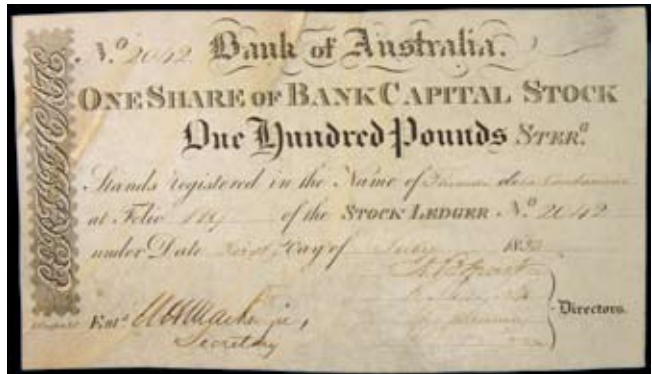 CERTIFICATE
No. 2042 Bank of Australia.
ONE SHARE OF BANK CAPITAL STOCK
One Hundred Pounds STER.G
Stands registered in the Name of Thomas de la Condamine
at Folio of the STOCK LEDGER No. 2042
under Date First Day of 183
Directors.
Ent.d
Secretary